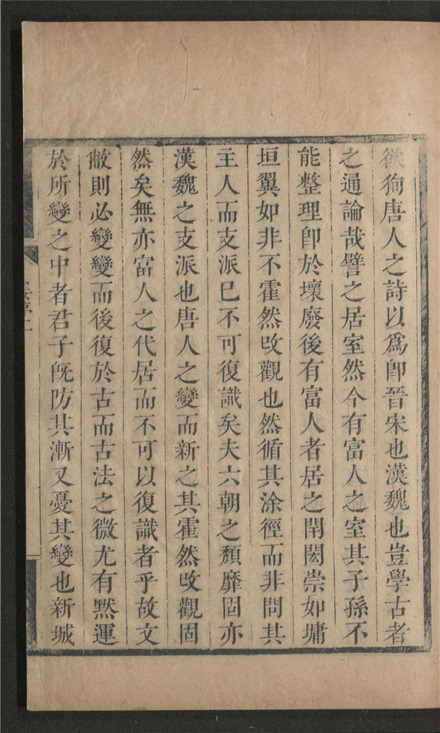 欲狥唐人之詩以爲卽晉宋也漢魏也豈學古者
之通論哉譬之居室然今有富人之室其子孫不
能整理卽於壞廢後有富人者居之閈閎崇如墉
垣翼如非不霍然改觀也然循其涂徑而非問其
主人而支派已不可復識矣夫六朝之頽靡固亦
漢魏之支派也唐人之變而新之其霍然改觀固
然矣無亦富人之代居而不可以復識者乎故文
敝則必變變而後復於古而古法之微尤有黙運
於所變之中者君子旣防其漸又憂其變也新城